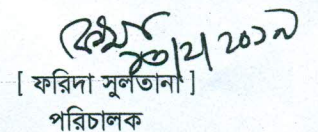 ২০১৯
[ ফরিদা সুলতানা ]
পরিচালক